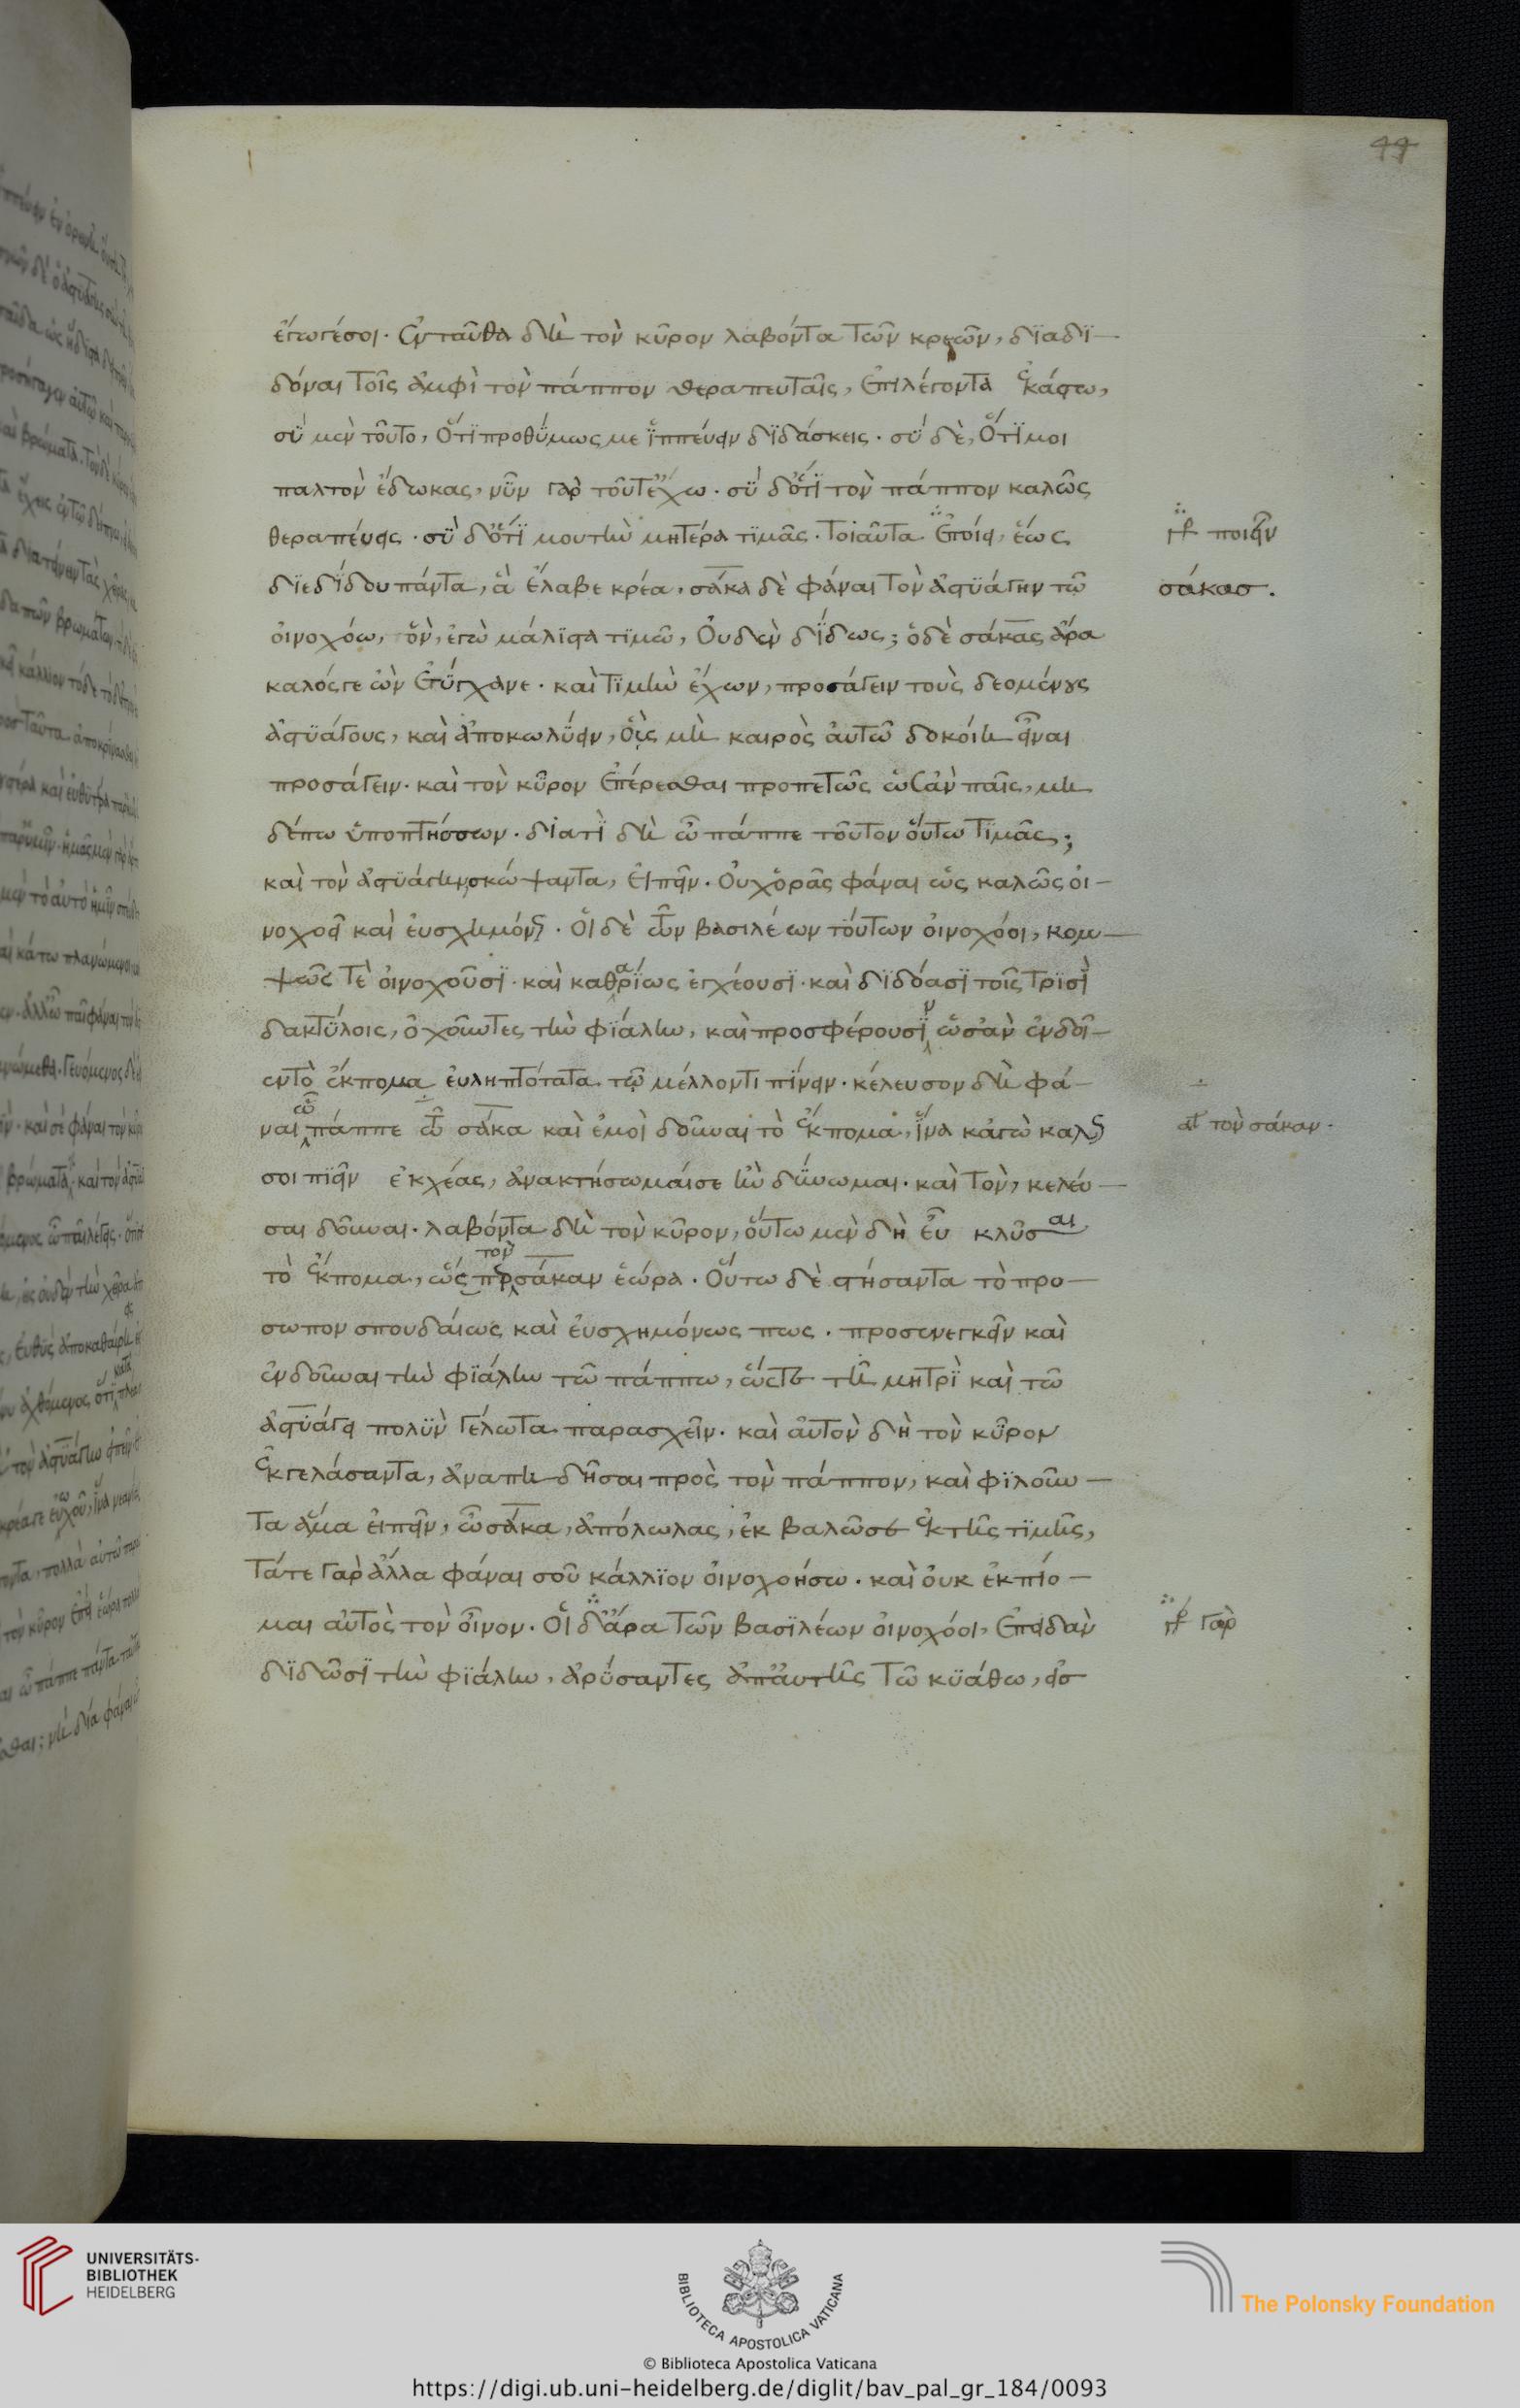 44
ἔγωγέ σοι. ἐνταῦθα δὴ τὸν κῦρον λαβόντα τῶν κρεῶν, δϊαδϊ
δόναι τοῖς ἀμφὶ τὸν πάππον θεραπευταῖς, ἐπιλέγοντα ἑκάστω,
σὺ μὲν τοῦτο, ὅτϊ προθύμως με ἱππεύειν δϊδάσκεις. σὺ δὲ, ὅτϊ μοι
παλτὸν ἔδωκας, νῦν γὰρ τοῦτ ἔχω. σὺ δ ὅτϊ τὸν πάππον καλῶς
θεραπεύεις. σὺ δ ὅτϊ μου τὴν μητέρα τϊμᾶς. τοιαῦτα ἐποίει, ἕως
γρ ποιεῖν
δϊεδίδου πάντα, ἃ ἔλαβε κρέα. σάκα δὲ φάναι τὸν ἀστϋάγην τῶ
σάκασ.
οἰνοχόω, ὃν, ἐγὼ μάλϊστα τϊμῶ, οὐδεν δίδως; ὁ δὲ σάκας ἄρα
καλός τε ὢν ἐτύγχανε. καὶ τϊμὴν ἔχων, προσάγειν τοὺς δεομένους
ἀστϋάγους, καὶ ἀποκωλύειν, οἷς μὴ καιρὸς αὐτῶ δοκοίη εἶναι
προσάγειν. καὶ τὸν κῦρον ἐπέρεσθαι προπετῶς ὡσὰν παῖς, μη
δέπω ὑποπτήσσων. διατὶ δὴ ὦ πάππε τοῦτον οὕτω τϊμᾶς;
καὶ τὸν ἀστϋάγην σκώψαντα, εἰπεῖν. οὐχ ὁρᾶς φάναι ὡς καλῶς οἰ
νοχοεῖ καὶ εὐσχημόνως. οἱ δὲ τῶν βασιλέων τούτων οἰνοχόοι, κομ
ψῶς τὲ οἰνοχοῦσϊ. καὶ καθαρίως ἐγχέουσϊ. καὶ δϊδόασϊ τοῖς τρϊσὶ
δακτύλοις, ὀχοῦντες τὴν φϊάλην, καὶ προσφέρουσϊν ὡσὰν ἐνδοῖ
εν τὸ ἔκπομα εὐληπτότατα τῶ μέλλοντι πίνειν. κέλευσον δὴ φά
ναι ὦ πάππε τῶ σάκα καὶ ἐμοὶ δοῦναι τὸ ἔκπομα, ἵνα κἀγὼ καλῶς
τὸν σάκαν.
σοι πιεῖν ἐκχέας, ἀνακτήσωμαί σε ἢν δύνωμαι. καὶ τὸν, κελεῦ
σαι δοῦναι. λαβόντα δὴ τὸν κῦρον, οὕτω μὲν δὴ εὖ κλῦσαι
τὸ ἔκπομα, ὡς τὸν σάκαν ἑώρα. οὕτω δὲ στήσαντα τὸ προ
σωπον σπουδαίως καὶ εὐσχημόνως πως. προσενεγκεῖν καὶ
ἐνδοῦναι τὴν φϊάλην τῶ πάππω, ὥστε τῆ μητρὶ καὶ τῶ
ἀστυάγει πολὺν γέλωτα παρασχεῖν. καὶ αὐτὸν δὴ τὸν κῦρον
ἐκγελάσαντα, ἀναπηδῆσαι πρὸς τὸν πάππον, καὶ φϊλοῦν
τα ἅμα εἰπεῖν, ὦ σάκα, ἀπόλωλας, ἐκ βαλῶ σε ἐκ τῆς τϊμῆς,
τά τε γὰρ ἄλλα φάναι σοῦ κάλλϊον οἰνοχοήσω. καὶ οὐκ ἐκπίο
μαι αὐτὸς τὸν οἶνον. οἱ δ ἄρα τῶν βασϊλέων οἰνοχόοι, ἐπειδὰν
γρ γὰρ
δϊδῶσϊ τὴν φϊάλην, ἀρύσαντες ἀπ αὐτῆς τῶ κϋάθω, εἰσ
UNIVERSITÄTS-
BIBLIOTHEK
HEIDELBERG
BIBLIOTECA APOSTOLICA VATICANA
The Polonsky Foundation
© Biblioteca Apostolica Vaticana
https://digi.ub.uni-heidelberg.de/diglit/bav_pal_gr_184/0093